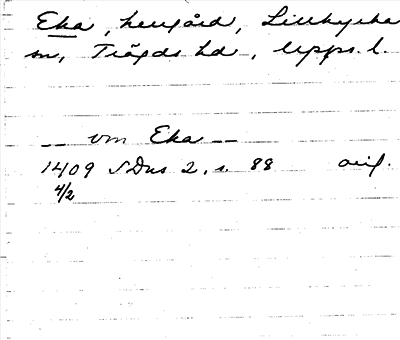 Eka, herrgård, Lillkyrka
sn, Trögds hd, Upps. l.
-- vm Eka --
1409 SDns 2, s. 88 orig.
4/2